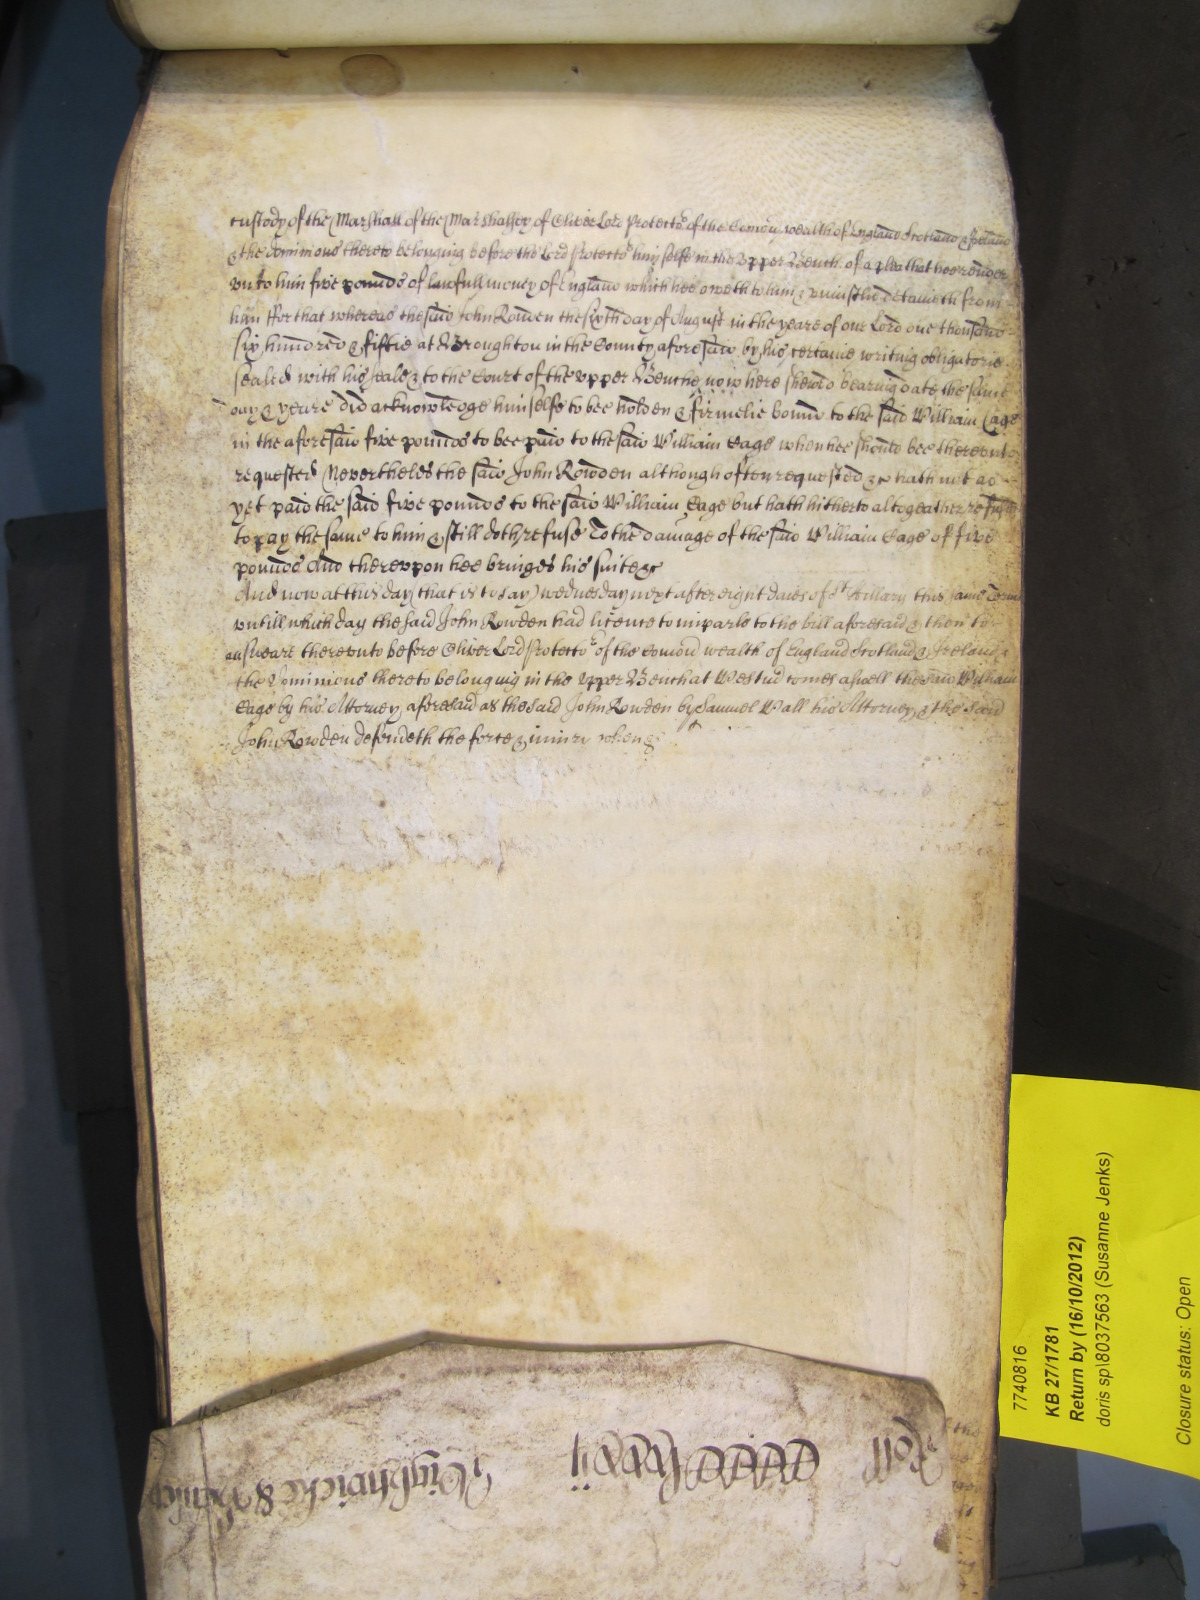 custody of the Marshall of the Marshalsey of Oliver Lord Protector of the Comon wealth of England Scotland & Ireland
& the dominions thereto belonging before the Lord Protector him selfe in the Upper Bench of a plea that hee render
unto him five pounds of lawfull money of England which hee oweth to him & uniustlie detaineth from
him ffor that whereas the said John Rowden the sixth day of August in the yeare of our Lord one thousand
six hundred & fiftie at Broughton in the County aforesaid by his certaine writing obligatorie
sealed with his seale & to the Court of the upper Benche now here shewed bearing date the same
day & yeare did acknowledge himselfe to bee holden & firmelie bound to the said William Cage
in the aforesaid five pounds to bee paid to the said William Cage when hee should bee thereunto
requested Neverthelesse the said John Rowden although often requested &c hath not as
yet paid the said five pounds to the said William Cage but hath hitherto altogeather refused
to pay the same to him & still doth refuse To the damage of the said William Cage of five
pounds And thereupon hee bringes his suite &c
And now at this day (that is to say) wednesday next after eight daies of St Hillary this same Terme
untill which day the said John Rowden had licence to imparle to the bill aforesaid & then to
answeare thereunto before Oliver Lord Protector of the Comon wealth of England Scotland & Ireland &
the Dominions thereto belonging in the Upper Bench at Westm comes aswell the said William
Cage by his Attorney aforesaid as the said John Rowden by Samuel Wall his Attorney & the said
John Rowden defendeth the force & iniurie when &c
Roll CCCClxxxvij Wightwicke &
7740816
KB 27/1781
Return by (16/10/2012)
doris sp\8037563 (Susanne Jenks)
Closure status: Open